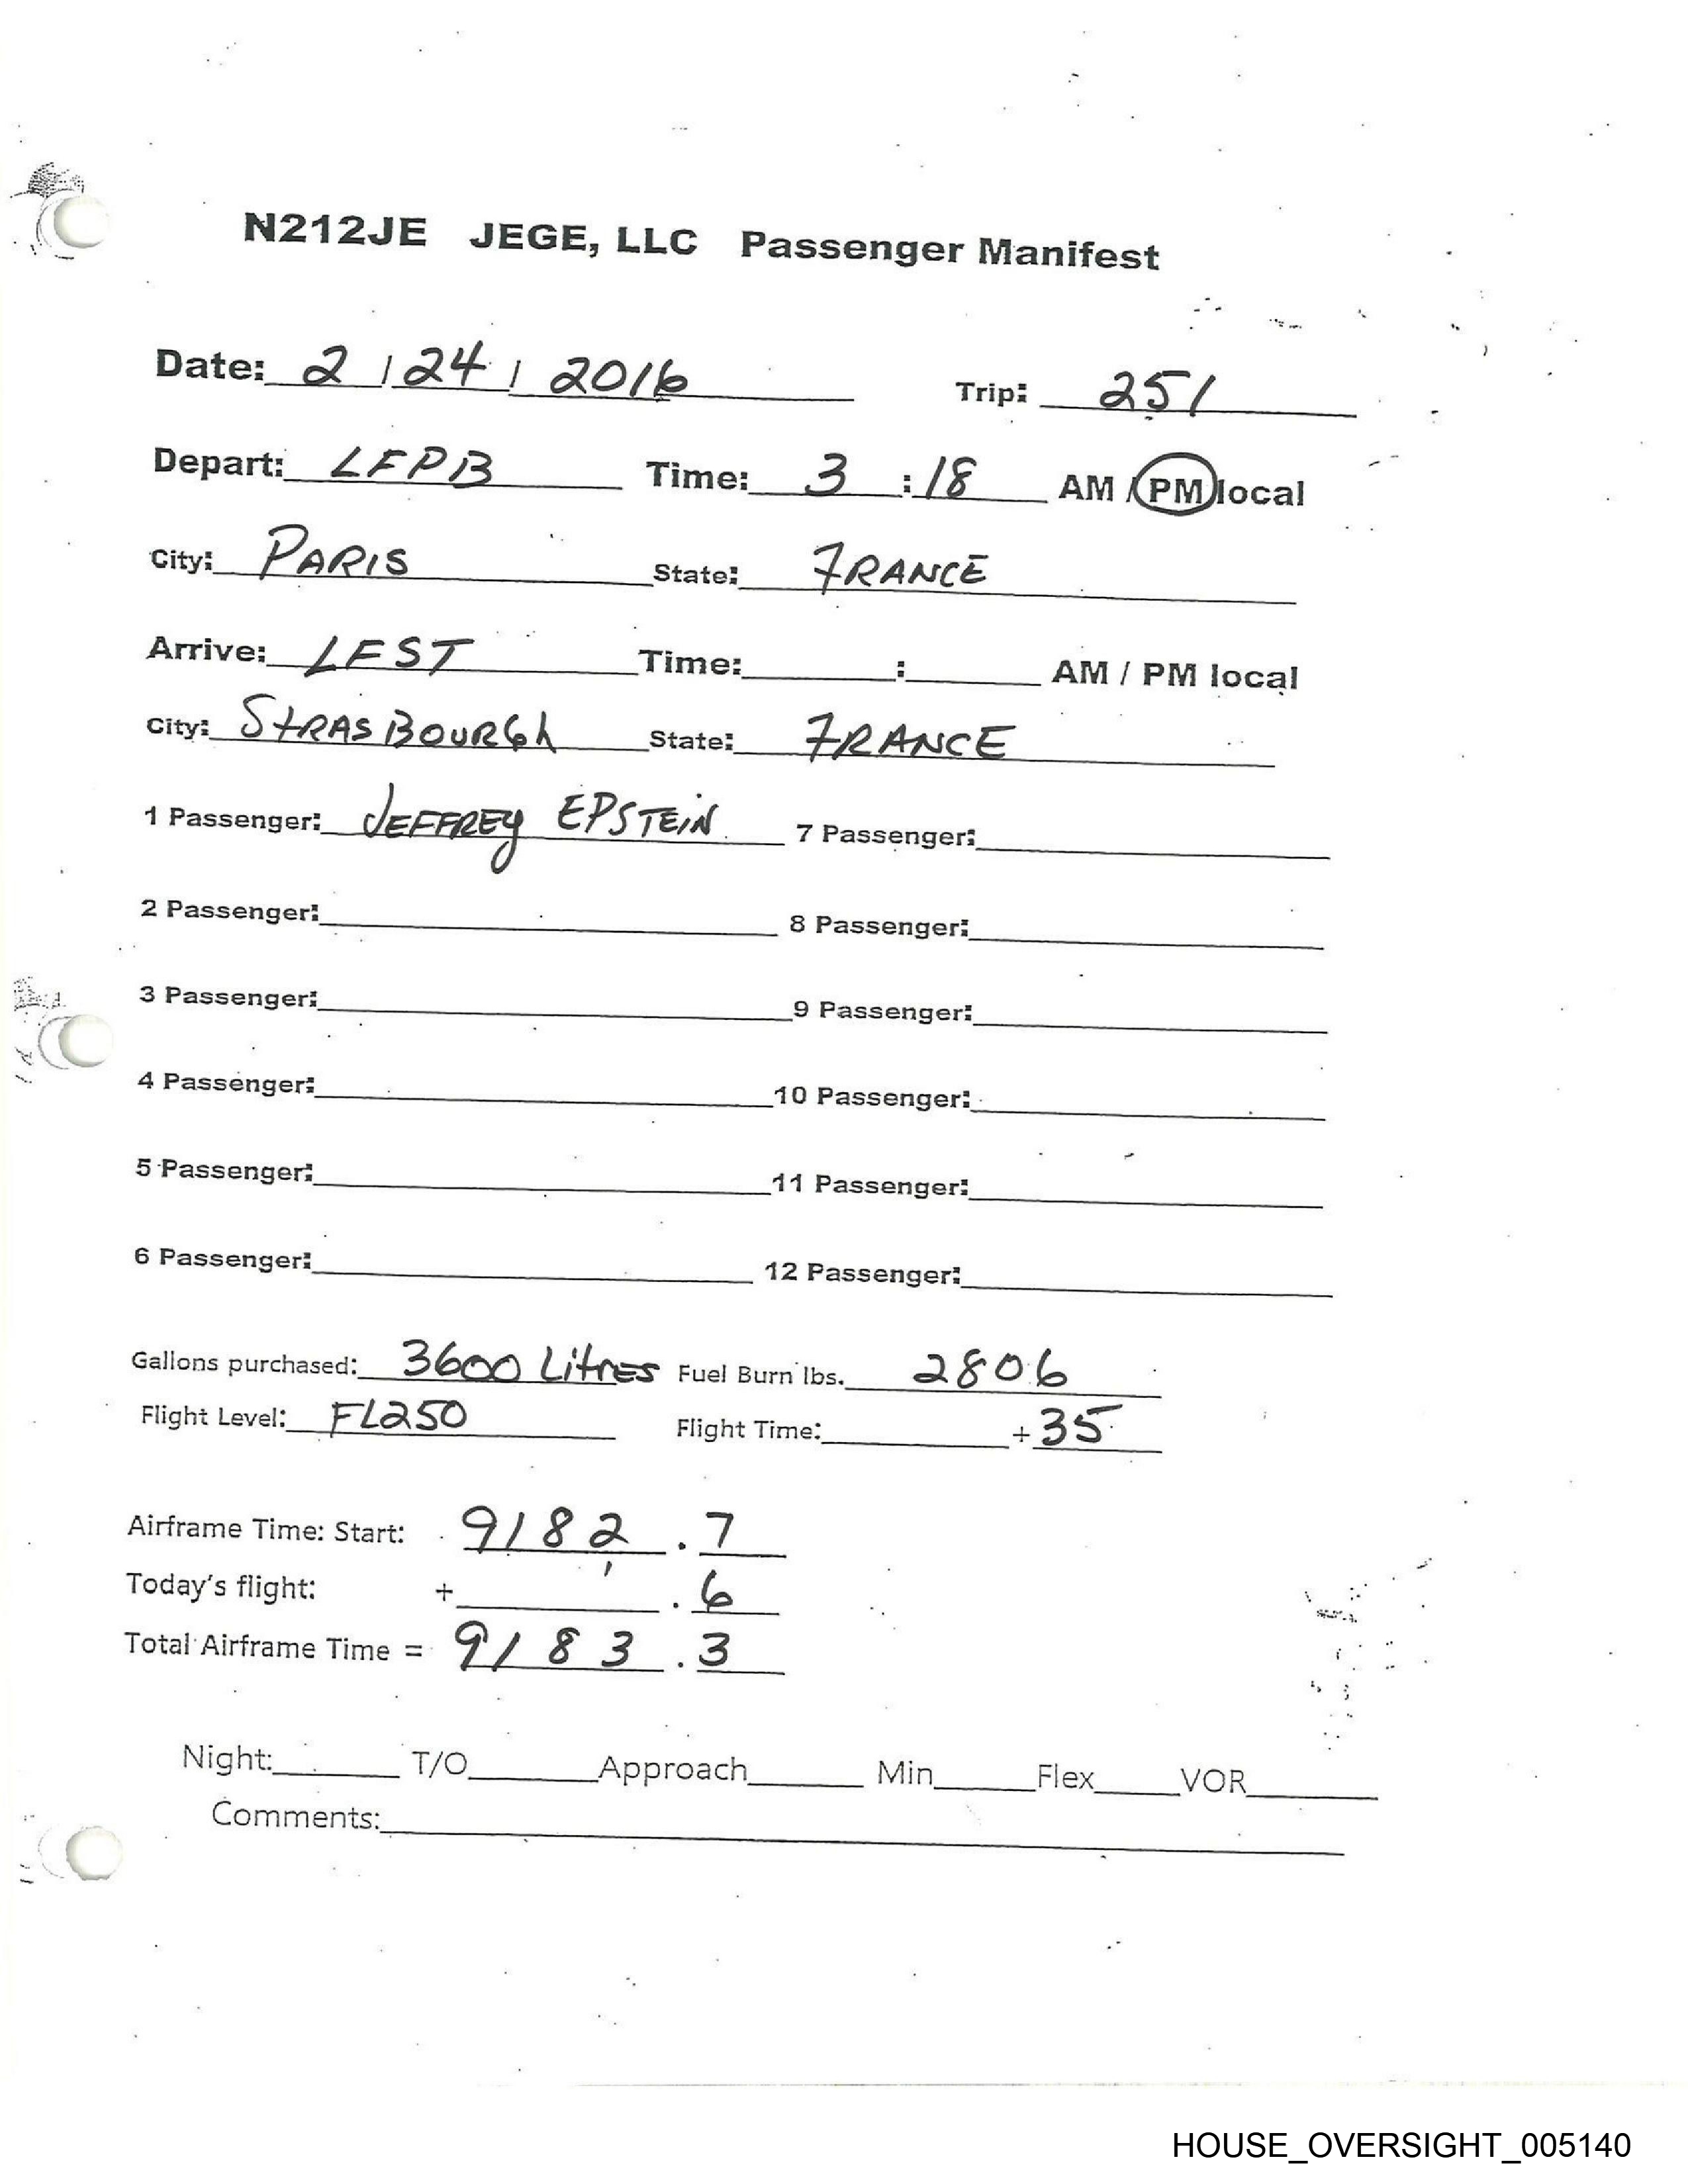 N212JE JEGE, LLC Passenger Manifest
Date: 2 / 24 / 2016 Trip: 251
Depart: LFPB Time: 3 : 18 AM / PM local
City: PARIS State: FRANCE
Arrive: LFST Time: : AM / PM local
City: STRASBOURGh State: FRANCE
1 Passenger: JEFFREY EPSTEIN 7 Passenger:
2 Passenger: 8 Passenger:
3 Passenger: 9 Passenger:
4 Passenger: 10 Passenger:
5 Passenger: 11 Passenger:
6 Passenger: 12 Passenger:
Gallons purchased: 3600 LitRES Fuel Burn lbs. 2806
Flight Level: FL250 Flight Time: + 35
Airframe Time: Start: 9182 . 7
Today's flight: + . 6
Total Airframe Time = 9183 . 3
Night: T/O Approach Min Flex VOR
Comments:
HOUSE_OVERSIGHT_005140